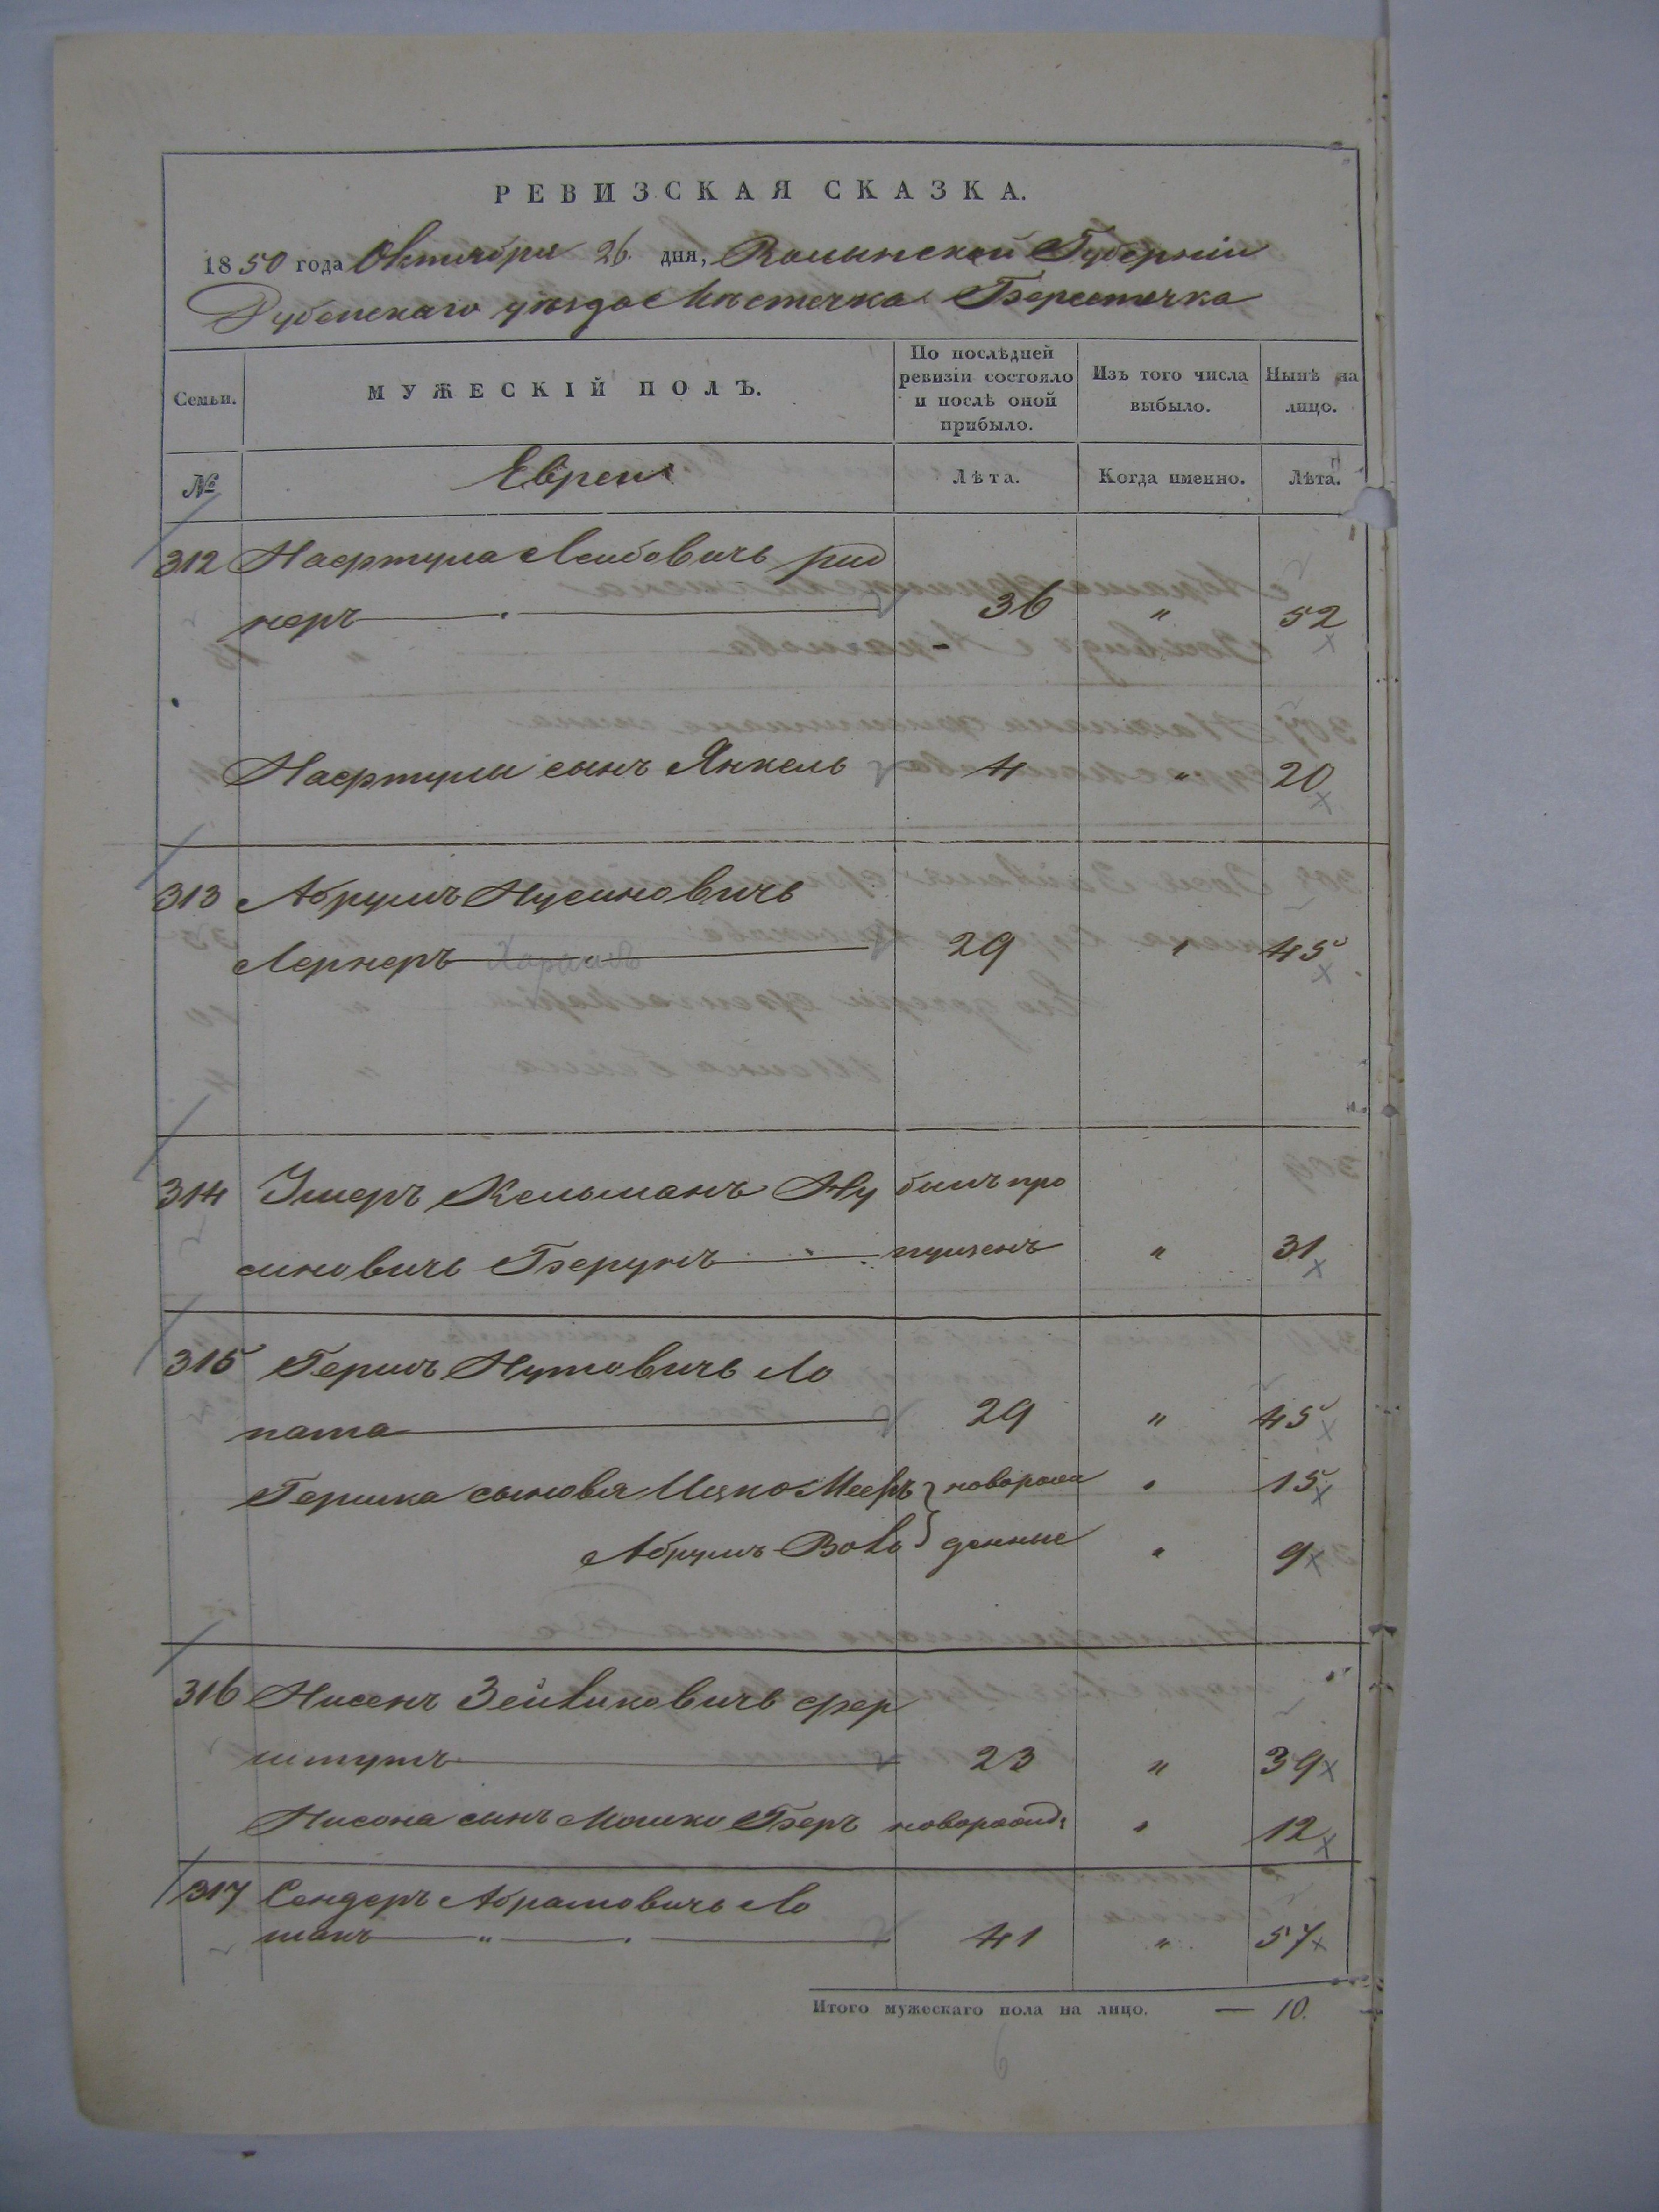 РЕВИЗСКАЯ СКАЗКА.
1850 года Октября 26 дня, Волынской Губерніи
Дубенскаго уѣзда Мѣстечка Берестечка
Семьи. МУЖЕСКІЙ ПОЛЪ. По послѣдней ревизіи состояло и послѣ оной прибыло. Изъ того числа выбыло. Нынѣ на лицо.
№ Евреи Лѣта. Когда именно. Лѣта.
312 Нафтула Лейбовичь рид
неръ 36 " 52
Нафтулы сынъ Янкель 4 " 20
313 Абрумъ Нусиновичь
Лернеръ 29 " 45
314 Ушеръ Кельманъ Ну былъ про
синовичь Берунъ пущенъ " 31
315 Гершъ Нутовичь Ло
пата 29 " 45
Гершка сыновья Ицко Мееръ } новорож " 15
Абрумъ Вовъ } денные " 9
316 Нисенъ Зейликовичь фер
штутъ 23 " 39
Нисона сынъ Мошко Беръ новорожд: " 12
317 Сендеръ Абрамовичь Ло
шакъ " 41 " 57
Итого мужескаго пола на лицо. — 10.